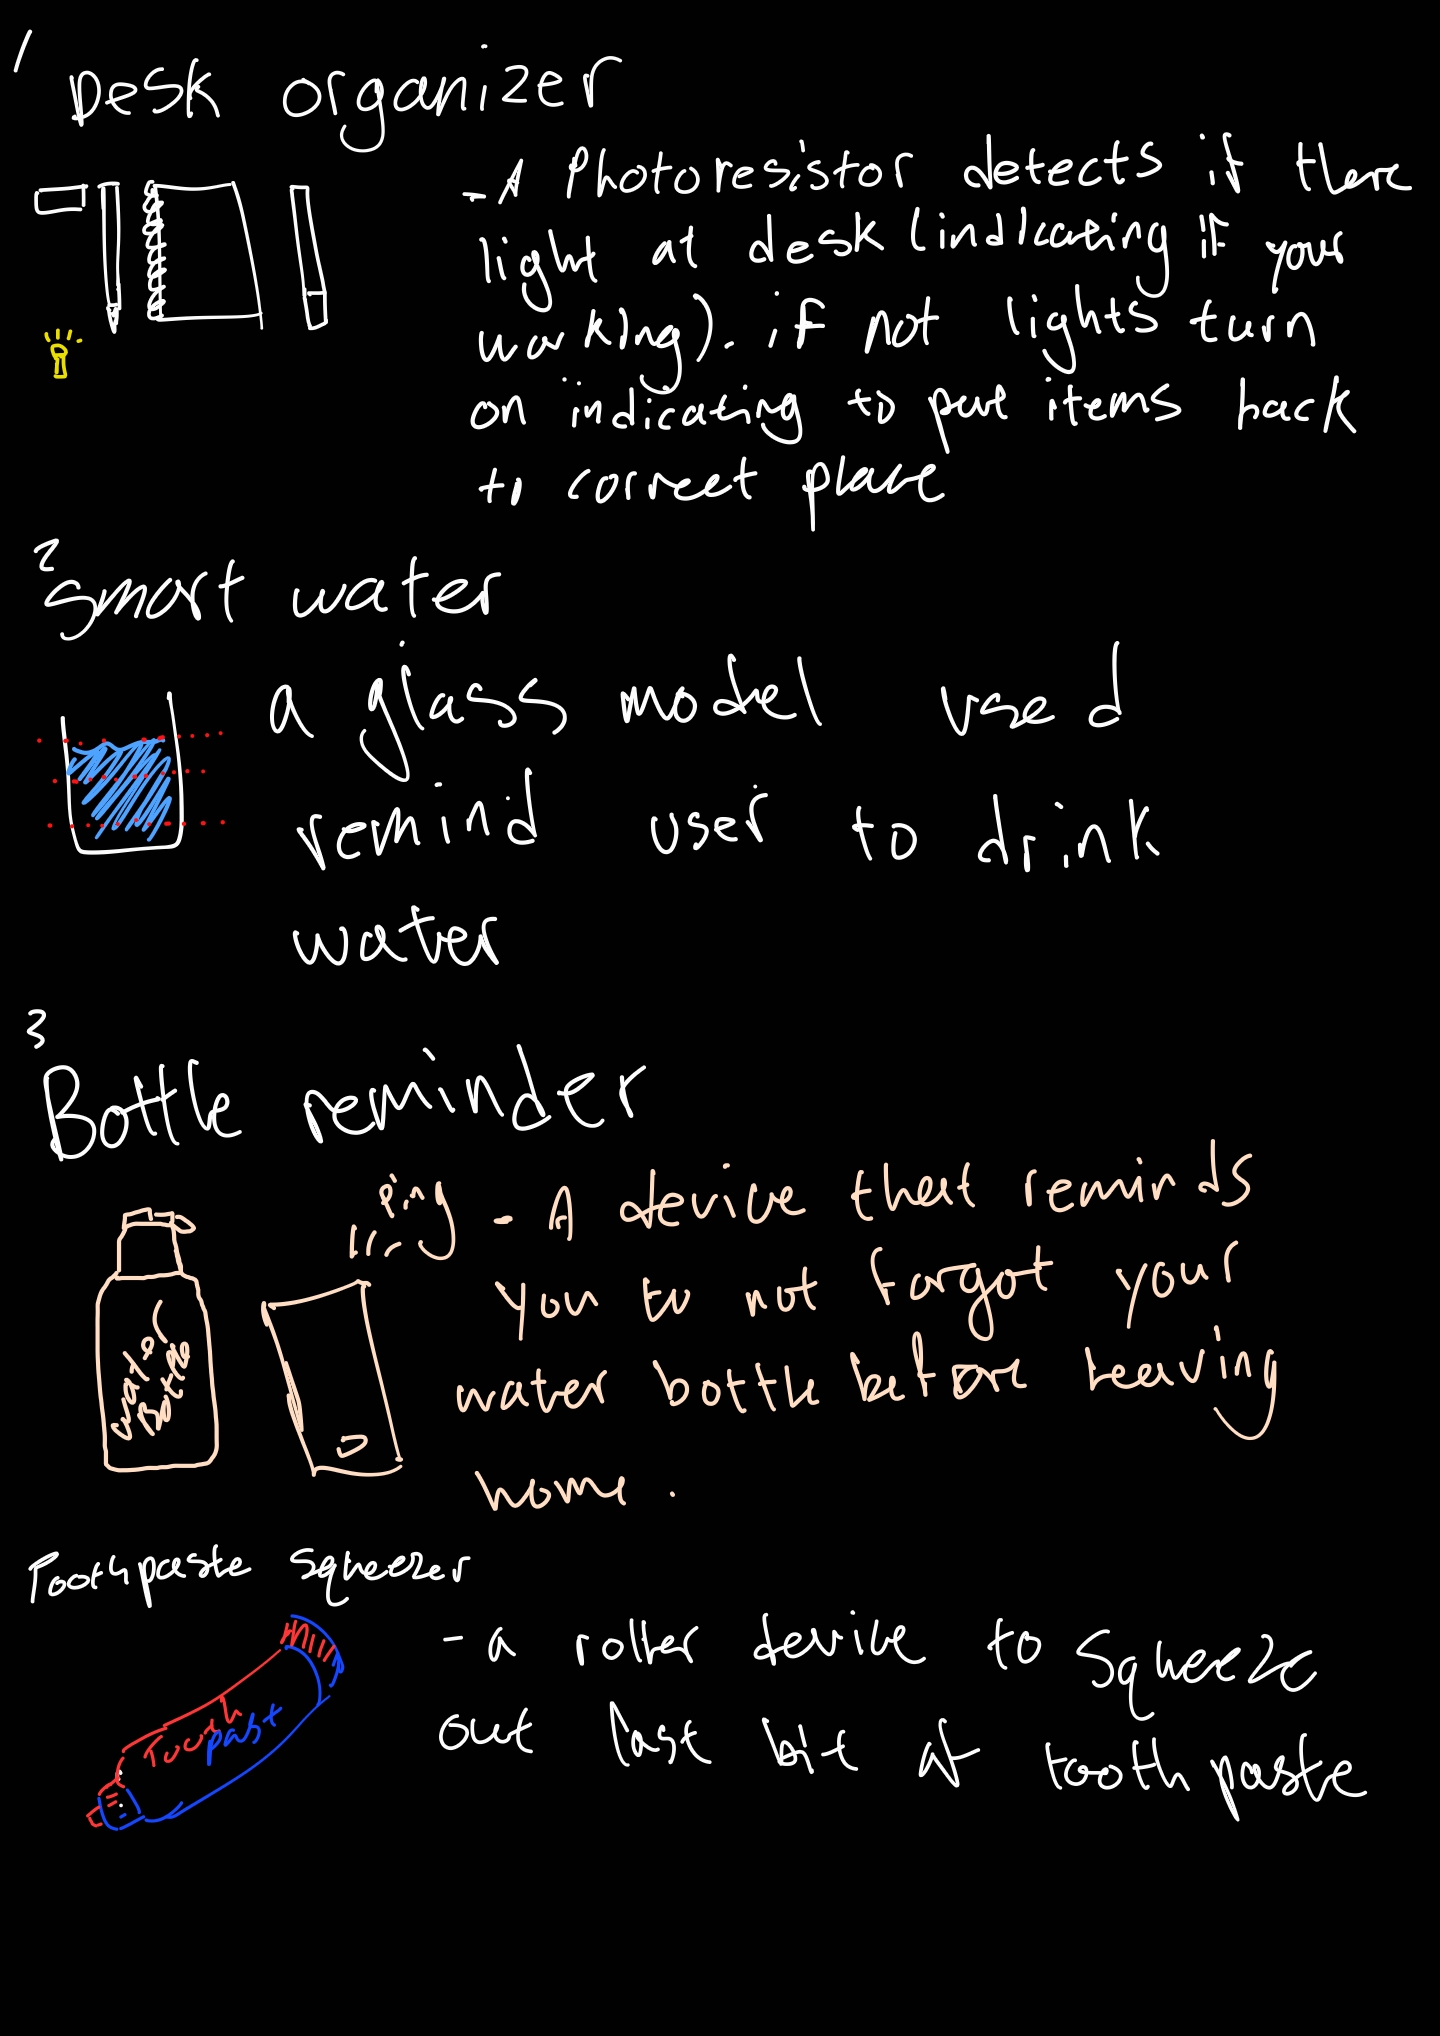 1
Desk organizer
- A Photoresistor detects if there
light at desk (indicating if your
working). if not lights turn
on indicating to put items back
to correct place
2
Smart water
a glass model used
remind user to drink
water
3
Bottle reminder
ping
- A device that reminds
you to not forgot your
water bottle before leaving
home.
water
Bottle
Toothpaste squeezer
- a roller device to squeeze
out last bit of tooth paste
Tooth
past